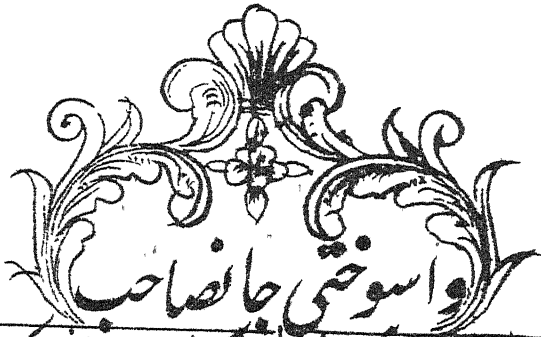 واسوختی جانصاحب